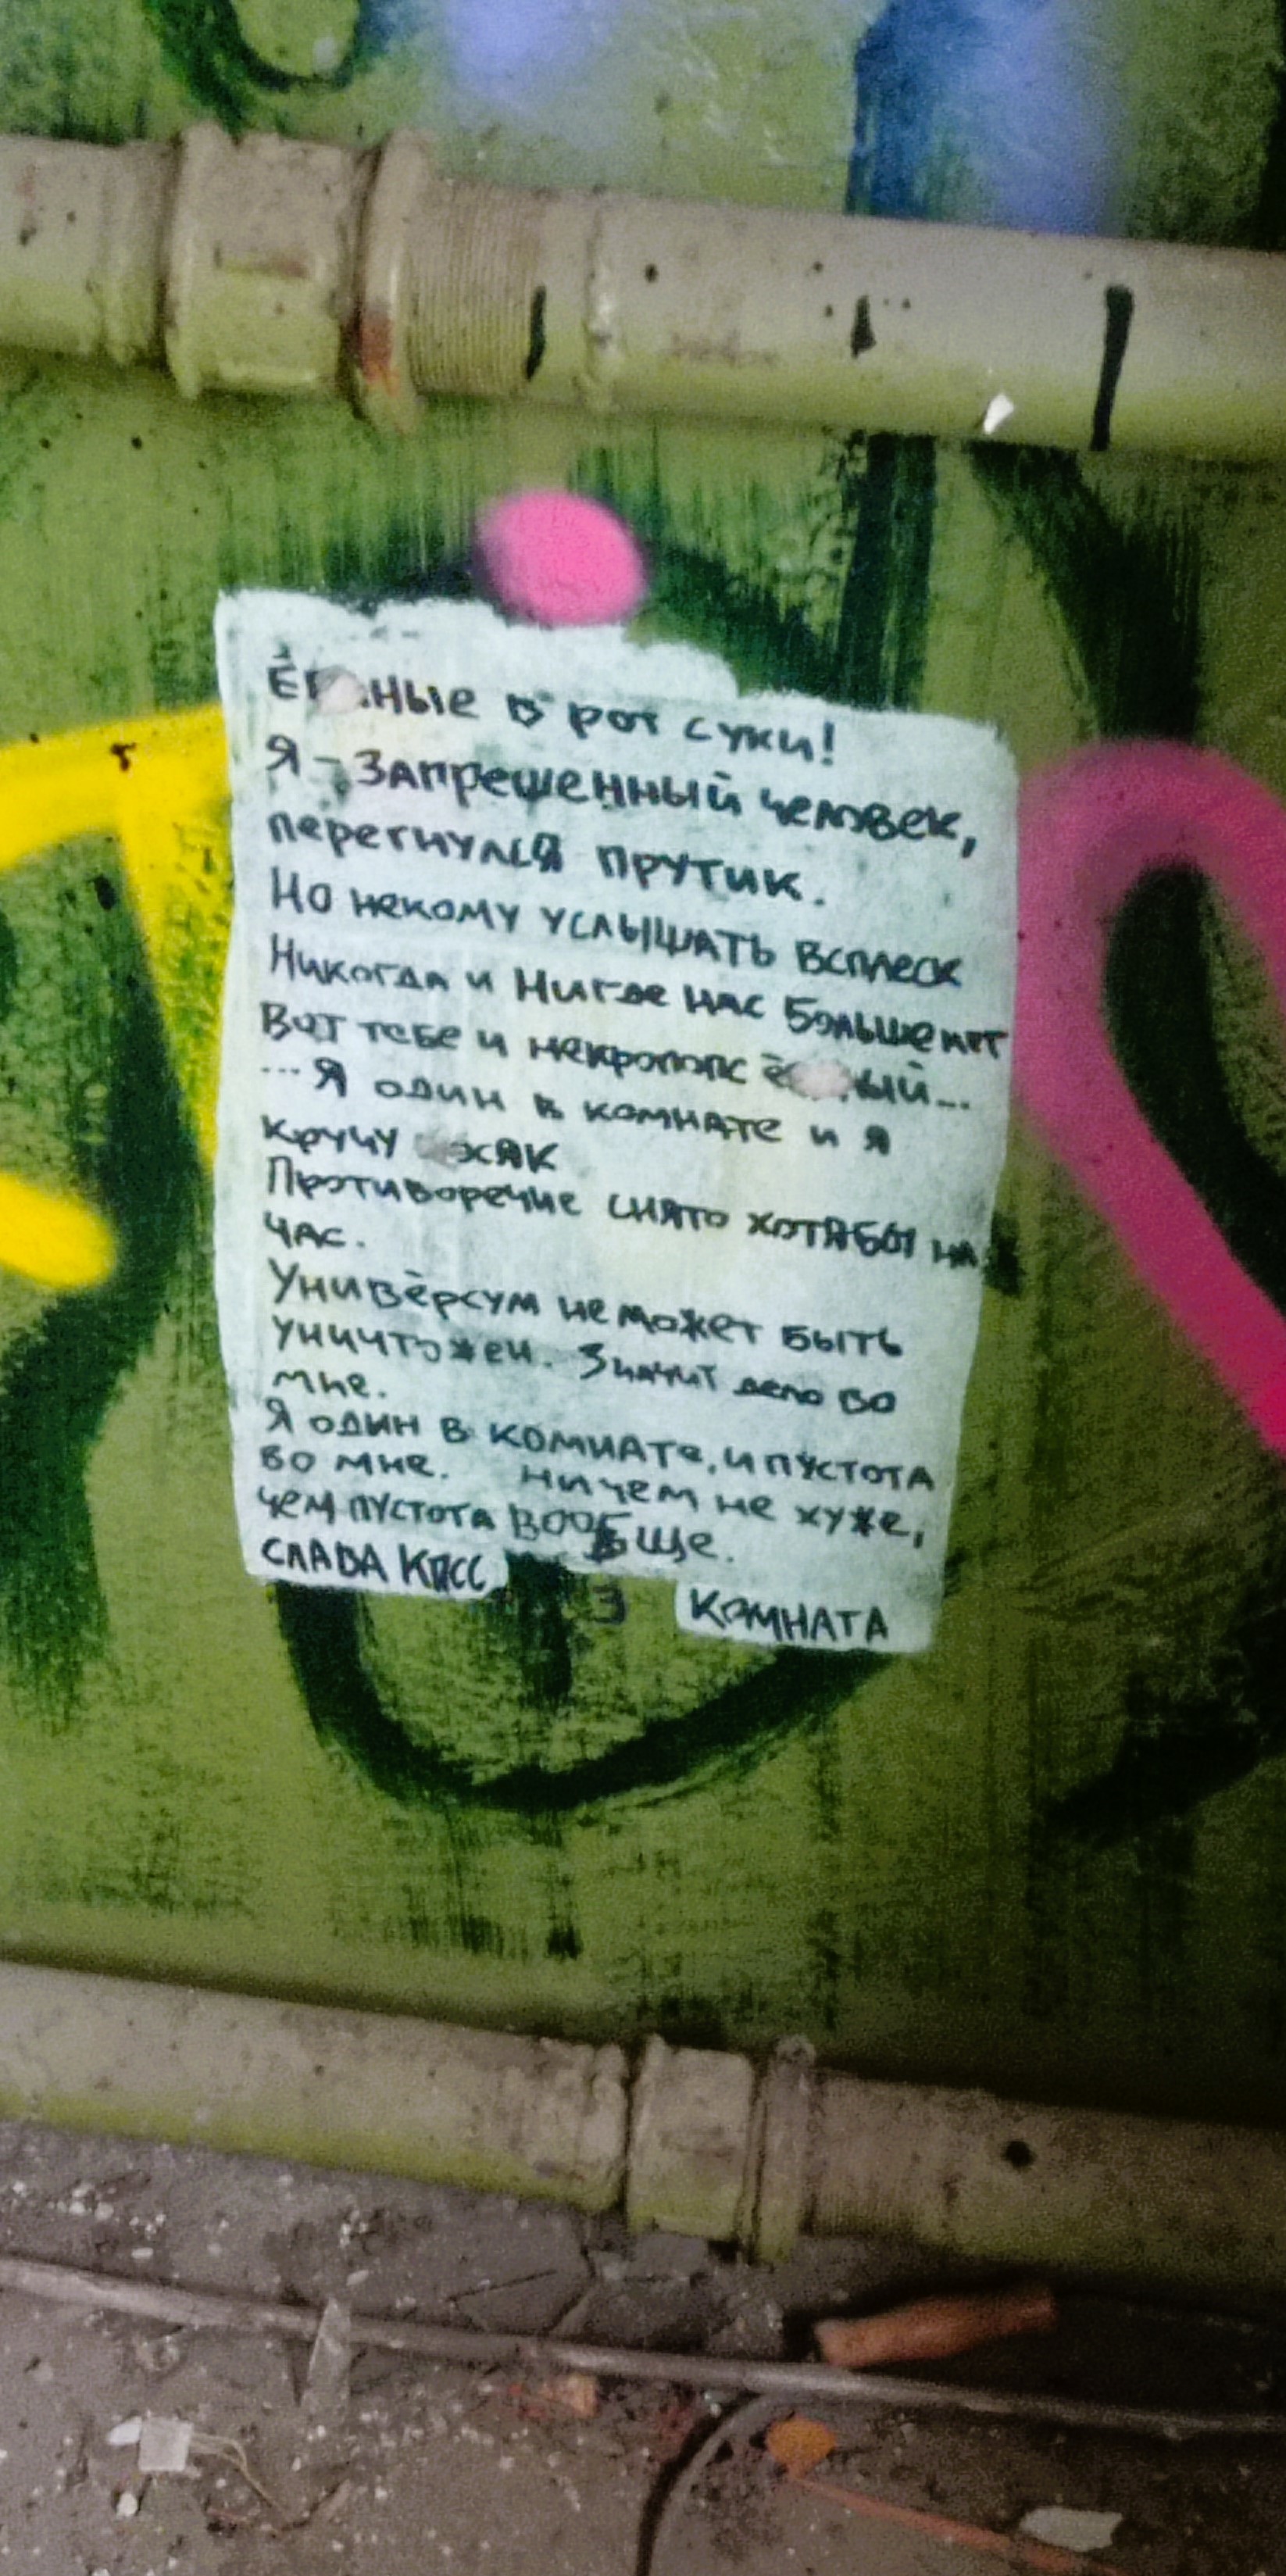 в рот суки!
Я - Запрешенный человек,
перегнулся прутик.
Но некому услышать всплеск
Никогда и Нигде нас больше нет
Вот тебе и некропопс
...Я один в комнате и я
кручу
Противоречие снято хотябы на
час.
Универсум не может быть
уничтожен. Значит дело во
мне.
Я один в комнате, и пустота
во мне. ничем не хуже,
чем пустота вообще.
СЛАВА КПСС
3 КОМНАТА